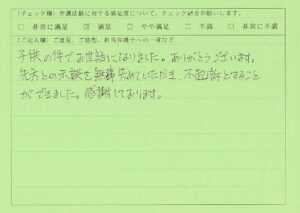 (チェック欄)弁護活動に対する満足度について、チェック☑をお願いします。
□ 非常に満足 ☑ 満足 □ やや満足 □ 不満 □ 非常に不満
(ご記入欄)ご意見、ご感想、担当弁護士への一言など
子供の件でお世話になりました。ありがとうございます。
先方との示談を無事先めていただき、不起訴とすること
ができました。感謝しております。